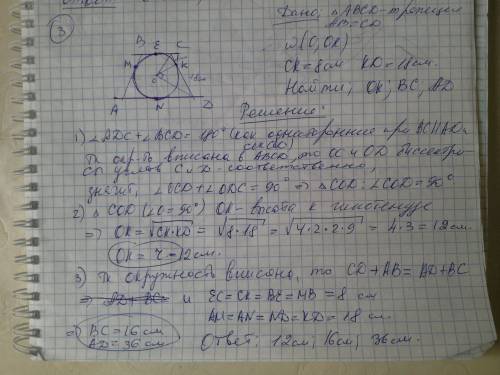 ③
Дано: ABCD-трапеция
AB=CD
ω(O; OK)
CK=8см KD=18см.
Найти: OK; BC, AD
B E C
M K
O 18см
A N D
Решение:
1) ∠ADC+∠BCD=180° (как односторонние при BC∥AD и
сек. CD)
Тк окр-ть вписана в ABCD, то CO и OD биссектри-
сы углов C и D - соответственно,
значит, ∠OCD+∠ODC=90° ⇒ △COD: ∠COD=90°
2) △COD (∠O=90°) OK-высота к гипотенузе
⇒ OK=√CK·KD = √8·18 = √4·2·2·9 = 4·3=12см.
OK=r=12см.
3) Тк окружность вписана, то CD+AB=AD+BC
⇒ и EC=CK=BE=MB=8 см
AM=AN=ND=KD=18 см.
⇒ BC=16см
AD=36см
Ответ: 12см; 16см; 36см.